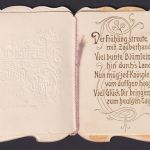 Der Frühling streute
mit Zauberhand
Viel bunte Blümlein
hin durch's Land
Nun mög jed' Knösple
vom duftgen
Viel Glück Dir bringen
zum heut'gen Tag